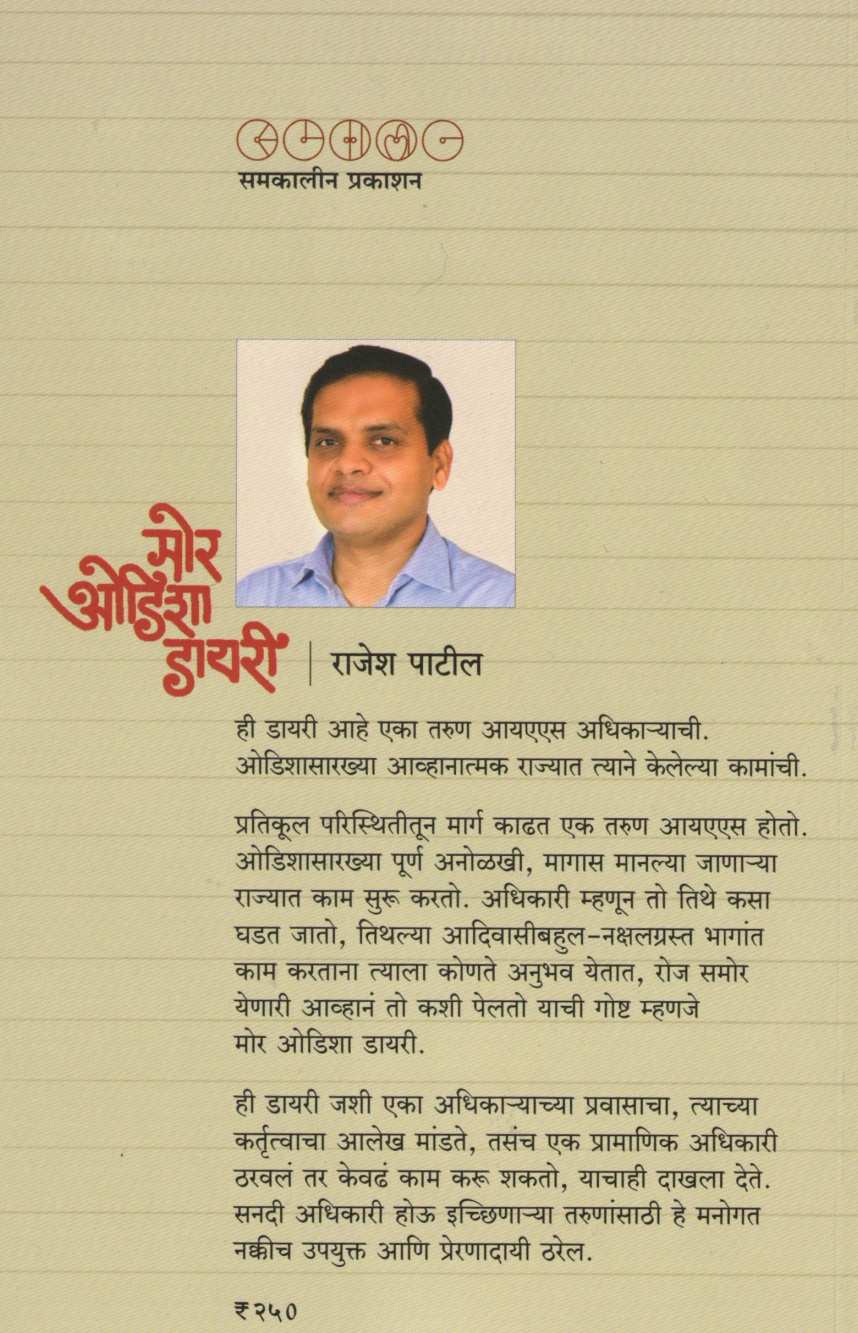 समकालीन
समकालीन प्रकाशन
मोर
ओडिशा
डायरी
राजेश पाटील
ही डायरी आहे एका तरुण आयएएस अधिकाऱ्याची.
ओडिशासारख्या आव्हानात्मक राज्यात त्याने केलेल्या कामांची.
प्रतिकूल परिस्थितीतून मार्ग काढत एक तरुण आयएएस होतो.
ओडिशासारख्या पूर्ण अनोळखी, मागास मानल्या जाणाऱ्या
राज्यात काम सुरू करतो. अधिकारी म्हणून तो तिथे कसा
घडत जातो, तिथल्या आदिवासीबहुल-नक्षलग्रस्त भागांत
काम करताना त्याला कोणते अनुभव येतात, रोज समोर
येणारी आव्हानं तो कशी पेलतो याची गोष्ट म्हणजे
मोर ओडिशा डायरी.
ही डायरी जशी एका अधिकाऱ्याच्या प्रवासाचा, त्याच्या
कर्तृत्वाचा आलेख मांडते, तसंच एक प्रामाणिक अधिकारी
ठरवलं तर केवढं काम करू शकतो, याचाही दाखला देते.
सनदी अधिकारी होऊ इच्छिणाऱ्या तरुणांसाठी हे मनोगत
नक्कीच उपयुक्त आणि प्रेरणादायी ठरेल.
₹२५०